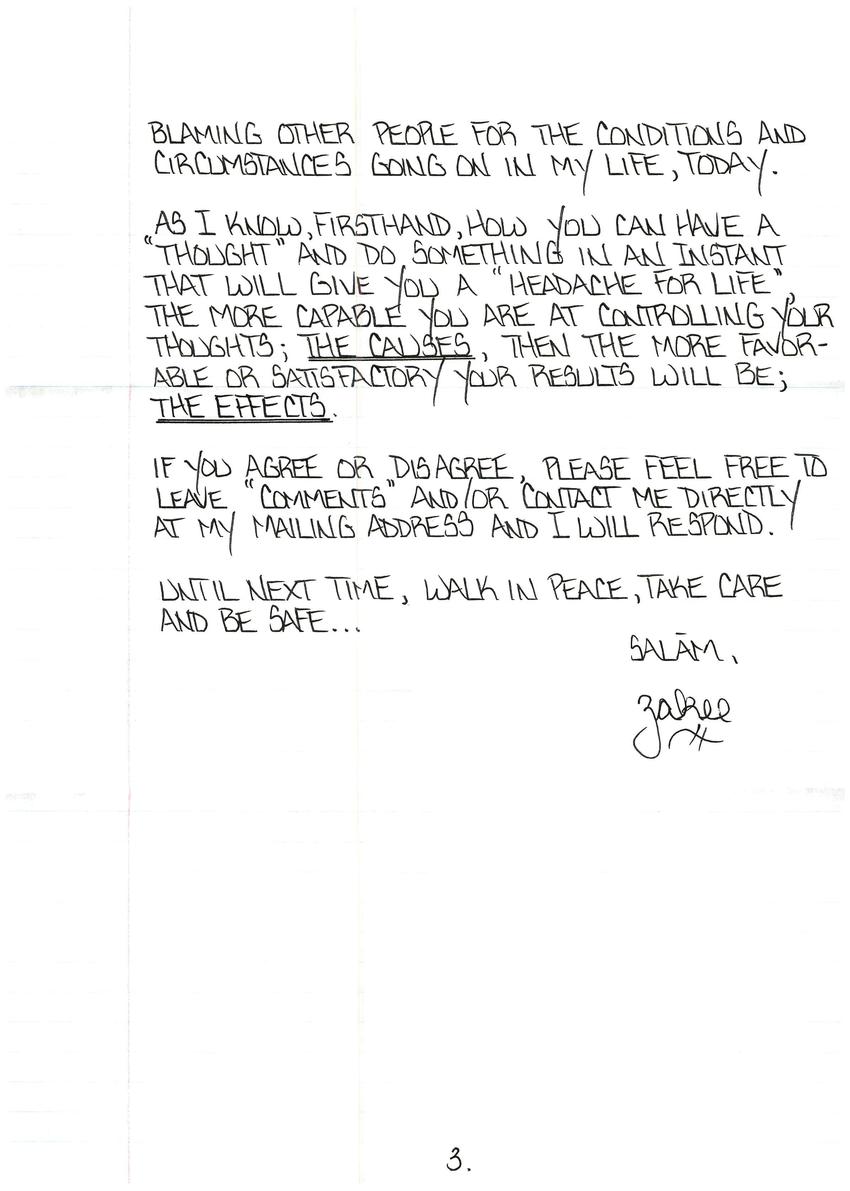 BLAMING OTHER PEOPLE FOR THE CONDITIONS AND
CIRCUMSTANCES GOING ON IN MY LIFE, TODAY.
AS I KNOW, FIRSTHAND, HOW YOU CAN HAVE A
"THOUGHT" AND DO SOMETHING IN AN INSTANT
THAT WILL GIVE YOU A "HEADACHE FOR LIFE",
THE MORE CAPABLE YOU ARE AT CONTROLLING YOUR
THOUGHTS; THE CAUSES, THEN THE MORE FAVOR-
ABLE OR SATISFACTORY YOUR RESULTS WILL BE;
THE EFFECTS.
IF YOU AGREE OR DISAGREE, PLEASE FEEL FREE TO
LEAVE "COMMENTS" AND/OR CONTACT ME DIRECTLY
AT MY MAILING ADDRESS AND I WILL RESPOND.
UNTIL NEXT TIME, WALK IN PEACE, TAKE CARE
AND BE SAFE...
SALĀM,
Zakee
3.